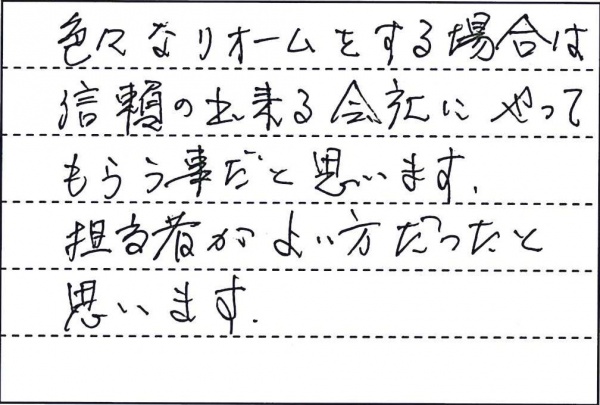 色々なリオームをする場合は
信頼の出来る会社にやって
もらう事だと思います.
担当者がよい方だったと
思います.